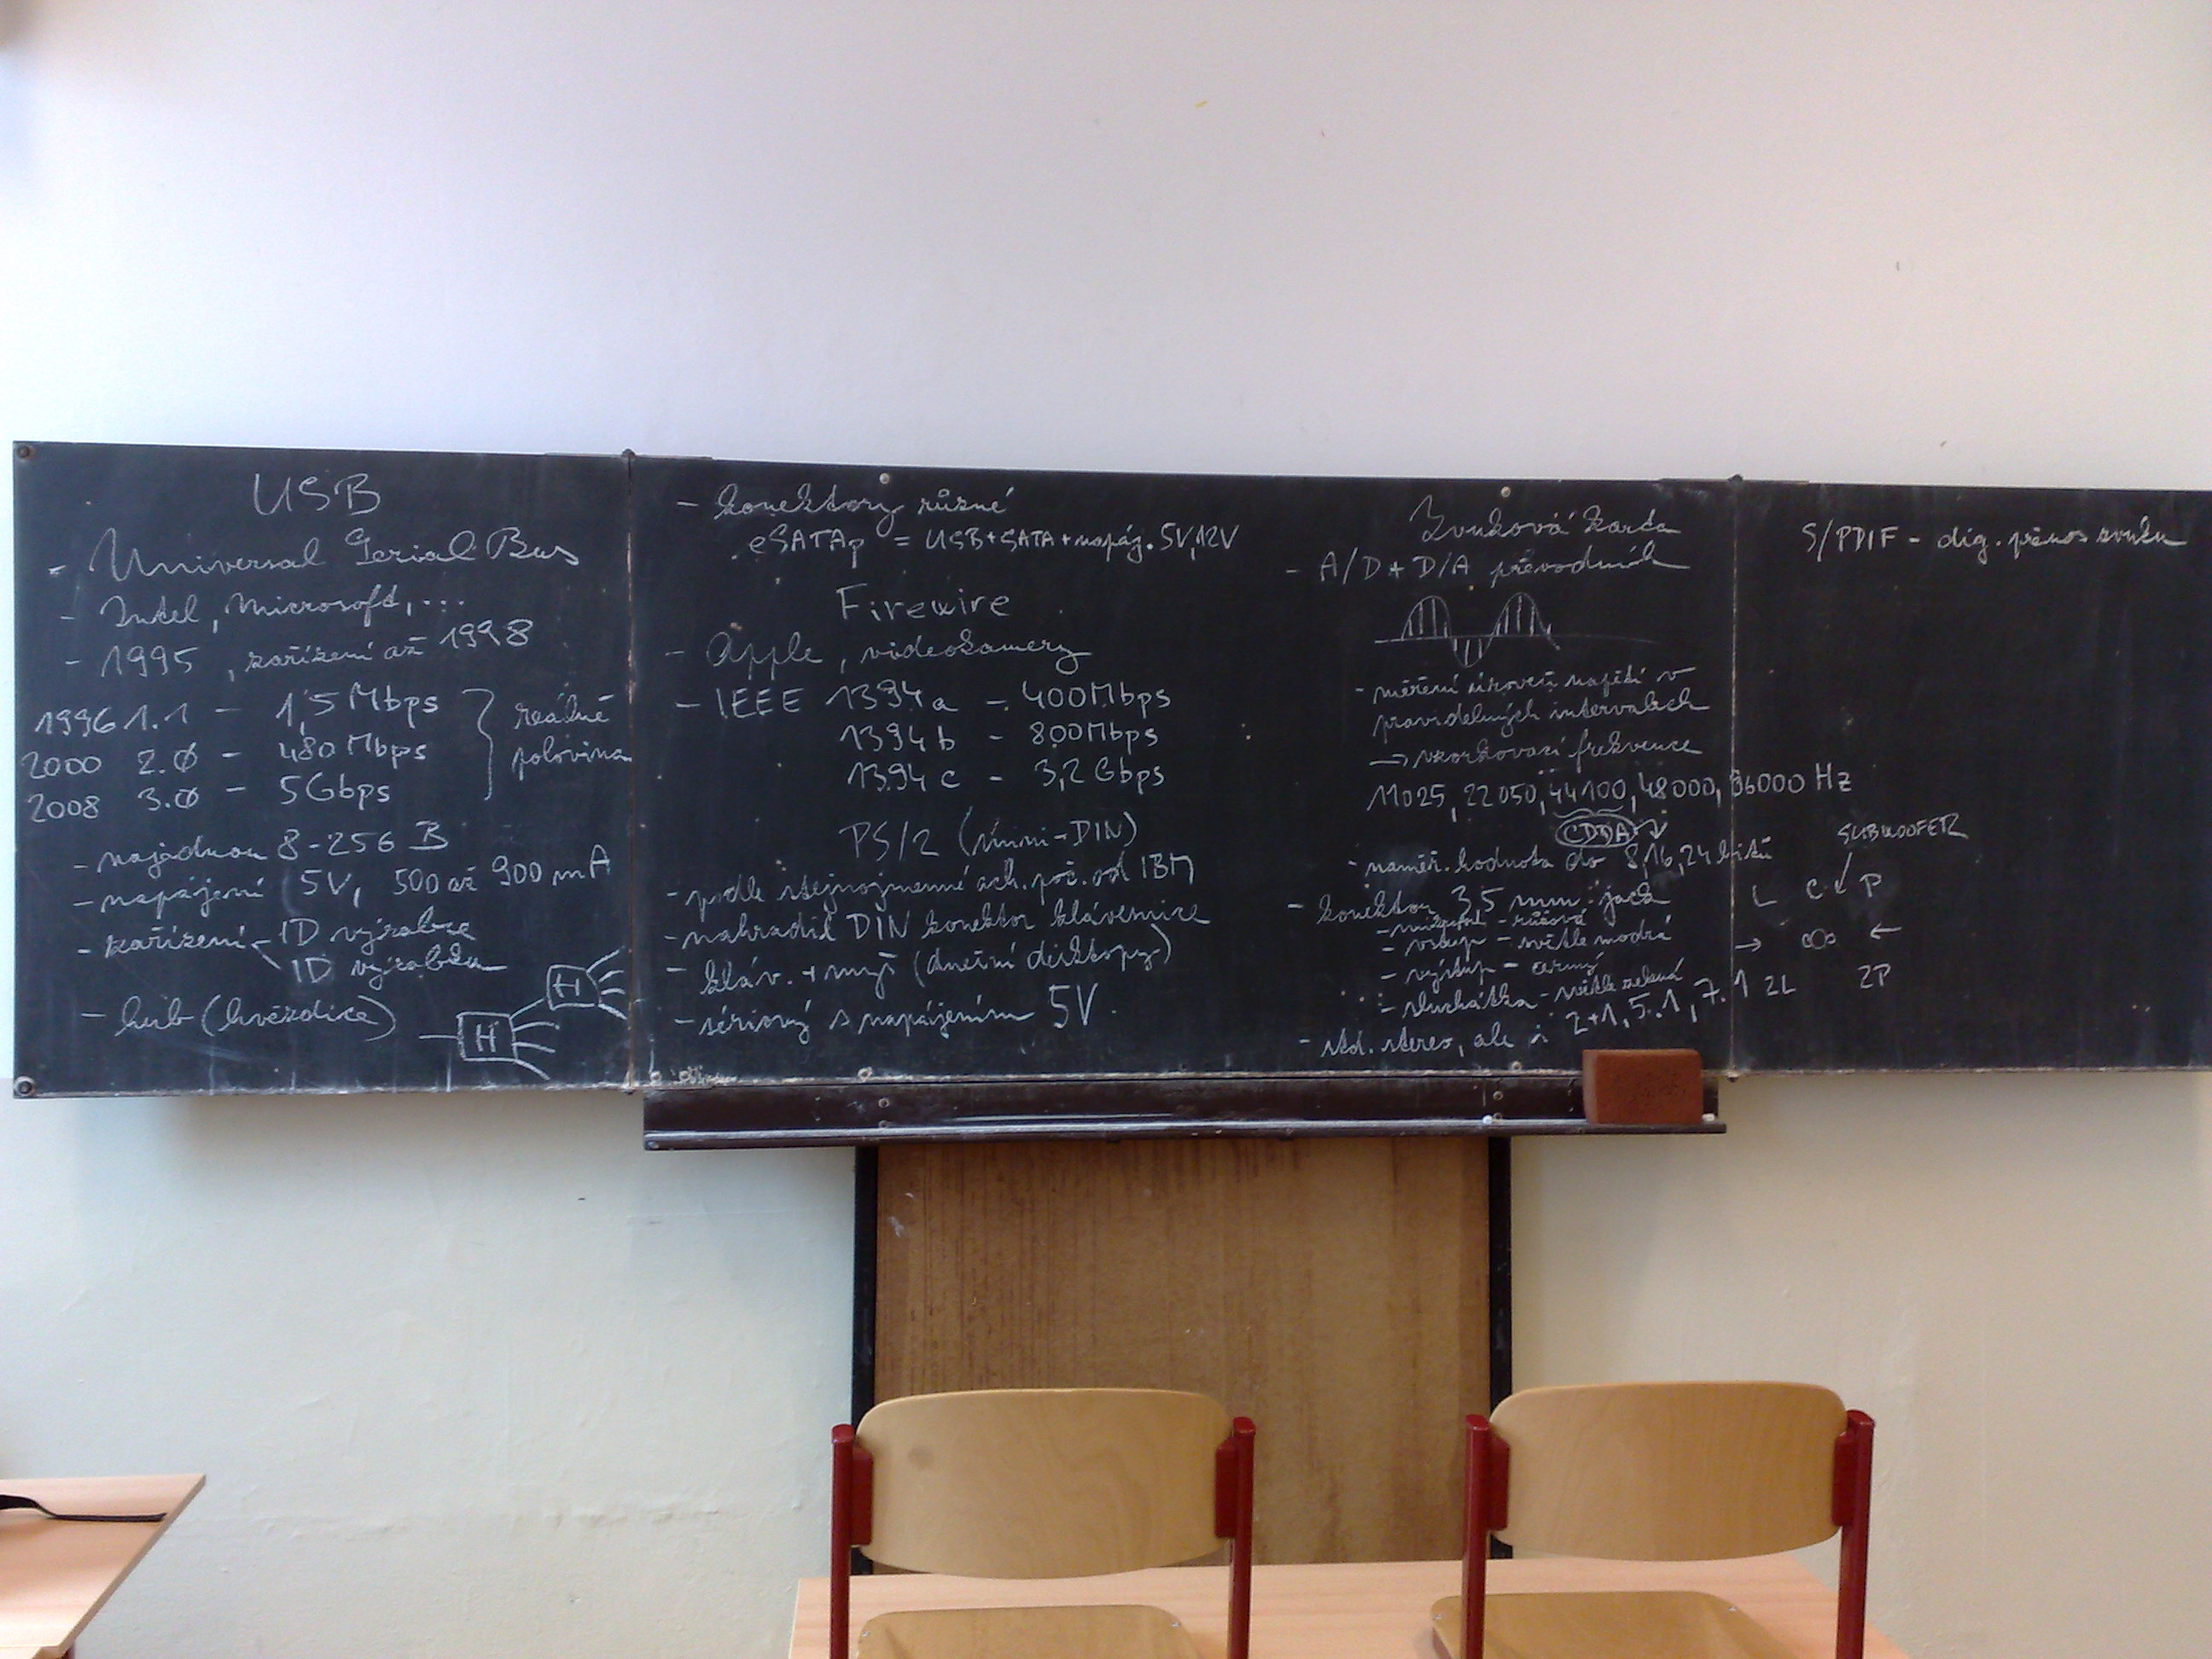 USB
- Universal Serial Bus
- Intel, Microsoft, ...
- 1995, zařízení až 1998
1996 1.1 - 1,5 Mbps
2000 2.0 - 480 Mbps
2008 3.0 - 5Gbps
reálně
polovina
- najednou 8-256 B
- napájení 5V, 500 až 900 mA
- zařízení - ID výrobce
ID výrobku
- hub (hvězdice)
H
H
- konektory různé
eSATAp = USB+SATA+napáj. 5V,12V
Firewire
- Apple, videokamery
- IEEE 1394a - 400Mbps
1394b - 800Mbps
1394c - 3,2Gbps
PS/2 (mini-DIN)
- podle stejnojmenné arch. poč. od IBM
- nahradil DIN konektor klávesnice
- kláv. + myš (dnešní desktopy)
- sériový s napájením 5V
Zvuková karta
- A/D + D/A převodník
- měření úrovení napětí v
pravidelných intervalech
→ vzorkovací frekvence
11025, 22050, 44100, 48000, 96000 Hz
CDDA
- naměř. hodnota do 8,16,24 bitů
- konektor 3,5 mm jack
- růžová
- vstup - světle modrá
- výstup - černý
- sluchátka - světle zelená
- std. stereo, ale i 2+1, 5.1, 7.1
S/PDIF - dig. přenos zvuku
SUBWOOFER
L C P
2L 2P